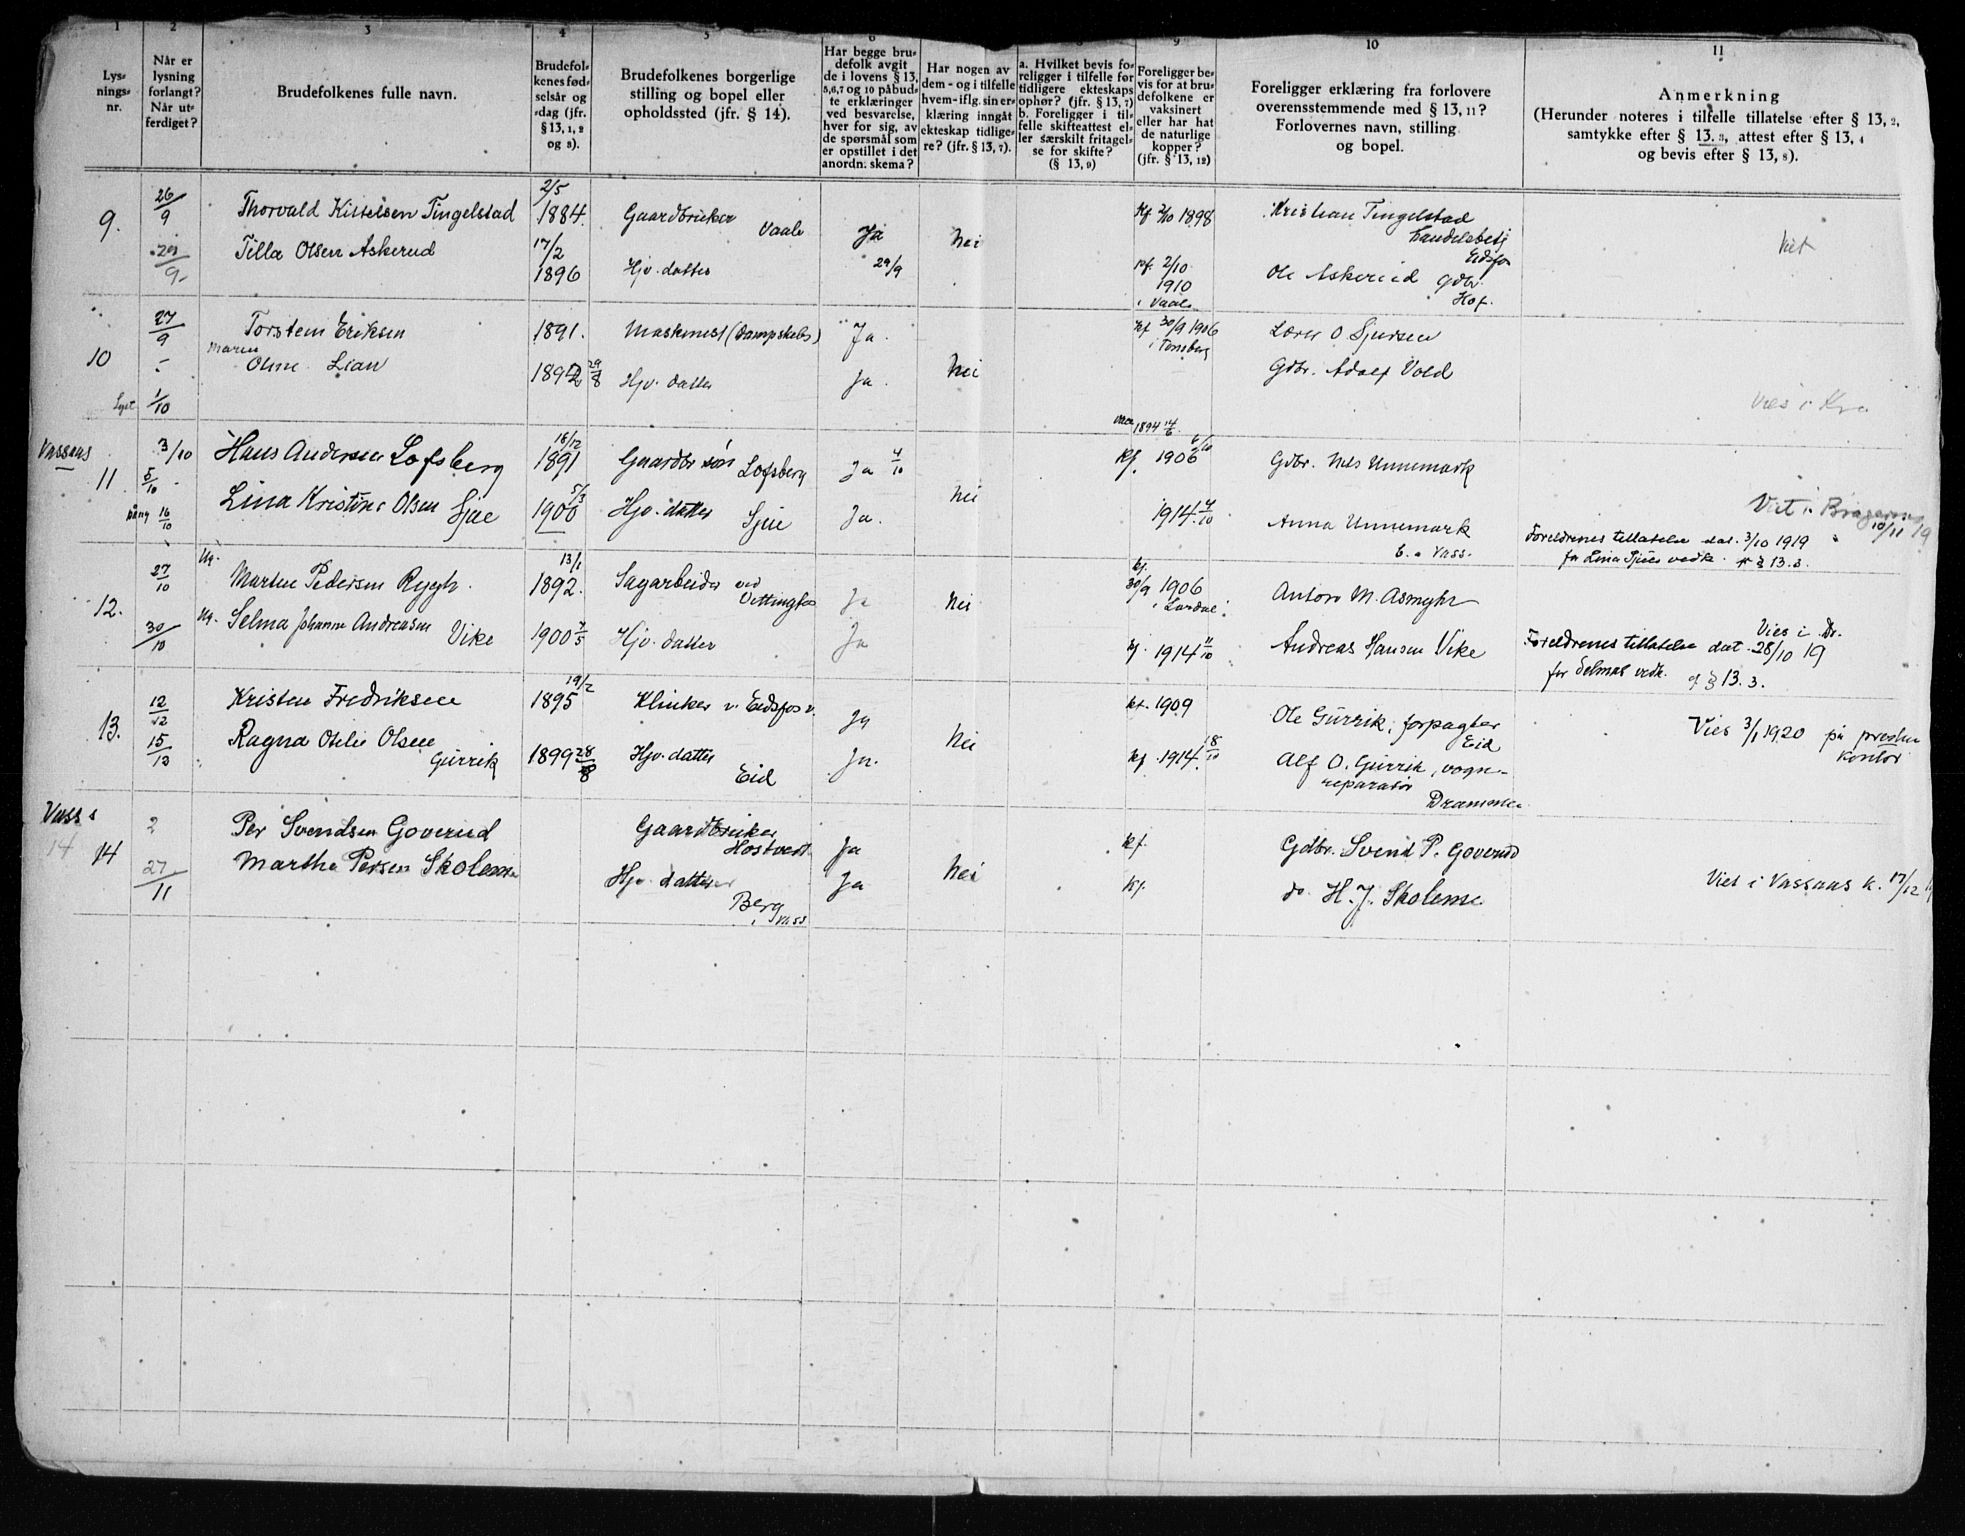 1 2 3 4 5 6 9 10 11
Lys-
nings-
nr.
Når er
lysning
forlangt?
Når ut-
ferdiget?
Brudefolkenes fulle navn.
Brudefol-
kenes fød-
selsår og
-dag (jfr.
§ 13, 1, 2
og 8).
Brudefolkenes borgerlige
stilling og bopel eller
opholdssted (jfr. § 14).
Har begge bru-
defolk avgit
de i lovens § 13,
5,6,7 og 10 påbud-
te erklæringer
ved besvarelse,
hver for sig, av
de spørsmål som
er opstillet i det
anordn. skema?
Har nogen av
dem - og i tilfelle
hvem - iflg. sin er-
klæring inngåt
ekteskap tidlige-
re? (jfr. § 13, 7).
a. Hvilket bevis fo-
religger i tilfelle før
tidligere ekteskaps
ophør? (jfr. § 13, 7)
b. Foreligger i til-
felle skifteattest el-
ler særskilt fritagel-
se for skifte?
(§ 13, 9)
Foreligger be-
vis for at bru-
defolkene er
vaksinert
eller har hat
de naturlige
kopper?
(jfr. § 13, 12)
Foreligger erklæring fra forlovere
overensstemmende med § 13, 11?
Forlovernes navn, stilling
og bopel.
Anmerkning
(Herunder noteres i tilfelle tillatelse efter § 13, 2,
samtykke efter § 13, 3, attest efter § 13, 4
og bevis efter § 13, 8).
9. 26/9 Thorvald Kittelsen Tingelstad 2/5 1884. Gaardbruker Vaale Ja Nei Kf 2/10 1898 Kristian Tingelstad
Eidsfos
29/9 Tilla Olsen Askerud 17/2 1896 Hjv. datter 29/9 kf. 2/10 1910 i Vaale Ole Askerud gdbr. Hof. Viet
10 27/9 Torstein Eriksen 1891. Maskinist (Dampskibs) Ja. Nei Kf 30/9 1906 i Tønsberg Lars O Sjursen
Maren
Oline Lian 1892 29/8 Hjv. datter Ja. Gdbr. Adolf Vold
Lyst 1/10 Vies i Kra
Vassaas
11 3/10 Hans Andersen Lofsberg 18/12 1891 Gaardbr søn Lofsberg Ja 4/10 Nei Kf. 1906 Gdbr. Nils Unnemark
5/10
16/10 Lina Kristine Olsen Sjue 5/3 1900 Hjv. datter Sjue Ja. 1914 4/10 Anna Unnemark Viet i Bragernes 10/11 19
Foreldrenes tillatelse dat. 3/10 1919
for Lina Sjues vedk. jfr § 13. 3.
12. 27/10 Ug. Martin Pedersen Ryggh. 13/1 1892. Sagarbeider ved Vittingfos Ja Nei kf. 30/9 1906 i Lardal. Anton M. Asmyhr
30/10 Ug. Selma Johanne Andreasen Vike 1900 Hjv. datter Ja kf. 1914 11/10 Andreas Hansen Vike Vies i Dr.
Foreldrenes tillatelse dat. 28/10 19
for Selmas vedk. jf § 13. 3.
13. 12/12 Kristen Fredriksen 19/2 1895 Klinker v. Eidsfos v. Ja Nei kf. 1909 Ole Gurrik, forpagter Eid
15/12 Ragna Otilie Olsen Gurrik 1899 28/8 Hjv. datter Eid Ja. kf. 1914. 18/10 Alf O. Gurrik, vogn-
reparatør
Drammen
Vies 3/1 1920 på prestens
kontor
Vass s
14 14 2 Per Svendsen Goverud Gaardbruker Hostvedt Ja Nei kf. Gdbr. Svend P. Goverud
27/11 Martha Persen Skoleme Hjv. datter Berg i Vass Ja kf. do. H. J. Skoleme Viet i Vassaas k. 17/12